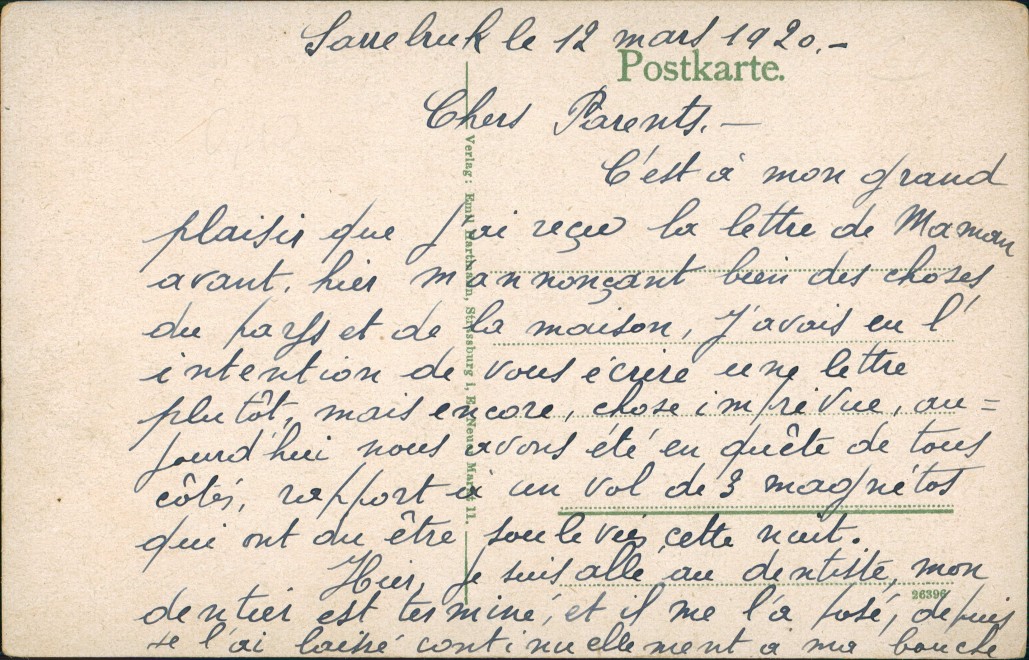 Sarrebruk le 12 mars 1920.-
Postkarte.
Chers Parents.-
C'est à mon grand
plaisir que j'ai reçu la lettre de Maman
avant. hier m'annonçant bien des choses
du pays et de la maison, j'avais eu l'
intention de vous écrire une lettre
plutôt, mais encore, chose imprévue, au=
jourd'hui nous avons été en quête de tous
côtés, rapport à un vol de 3 magnétos
qui ont du être soulevés, cette nuit.
Hier, je suis allé au dentiste, mon
dentier est terminé, et il me l'a posé, depuis
je l'ai laissé continuellement à ma bouche
Verlag: Emil Hartmann, Strassburg i, E. Neuer Markt 11.
26396